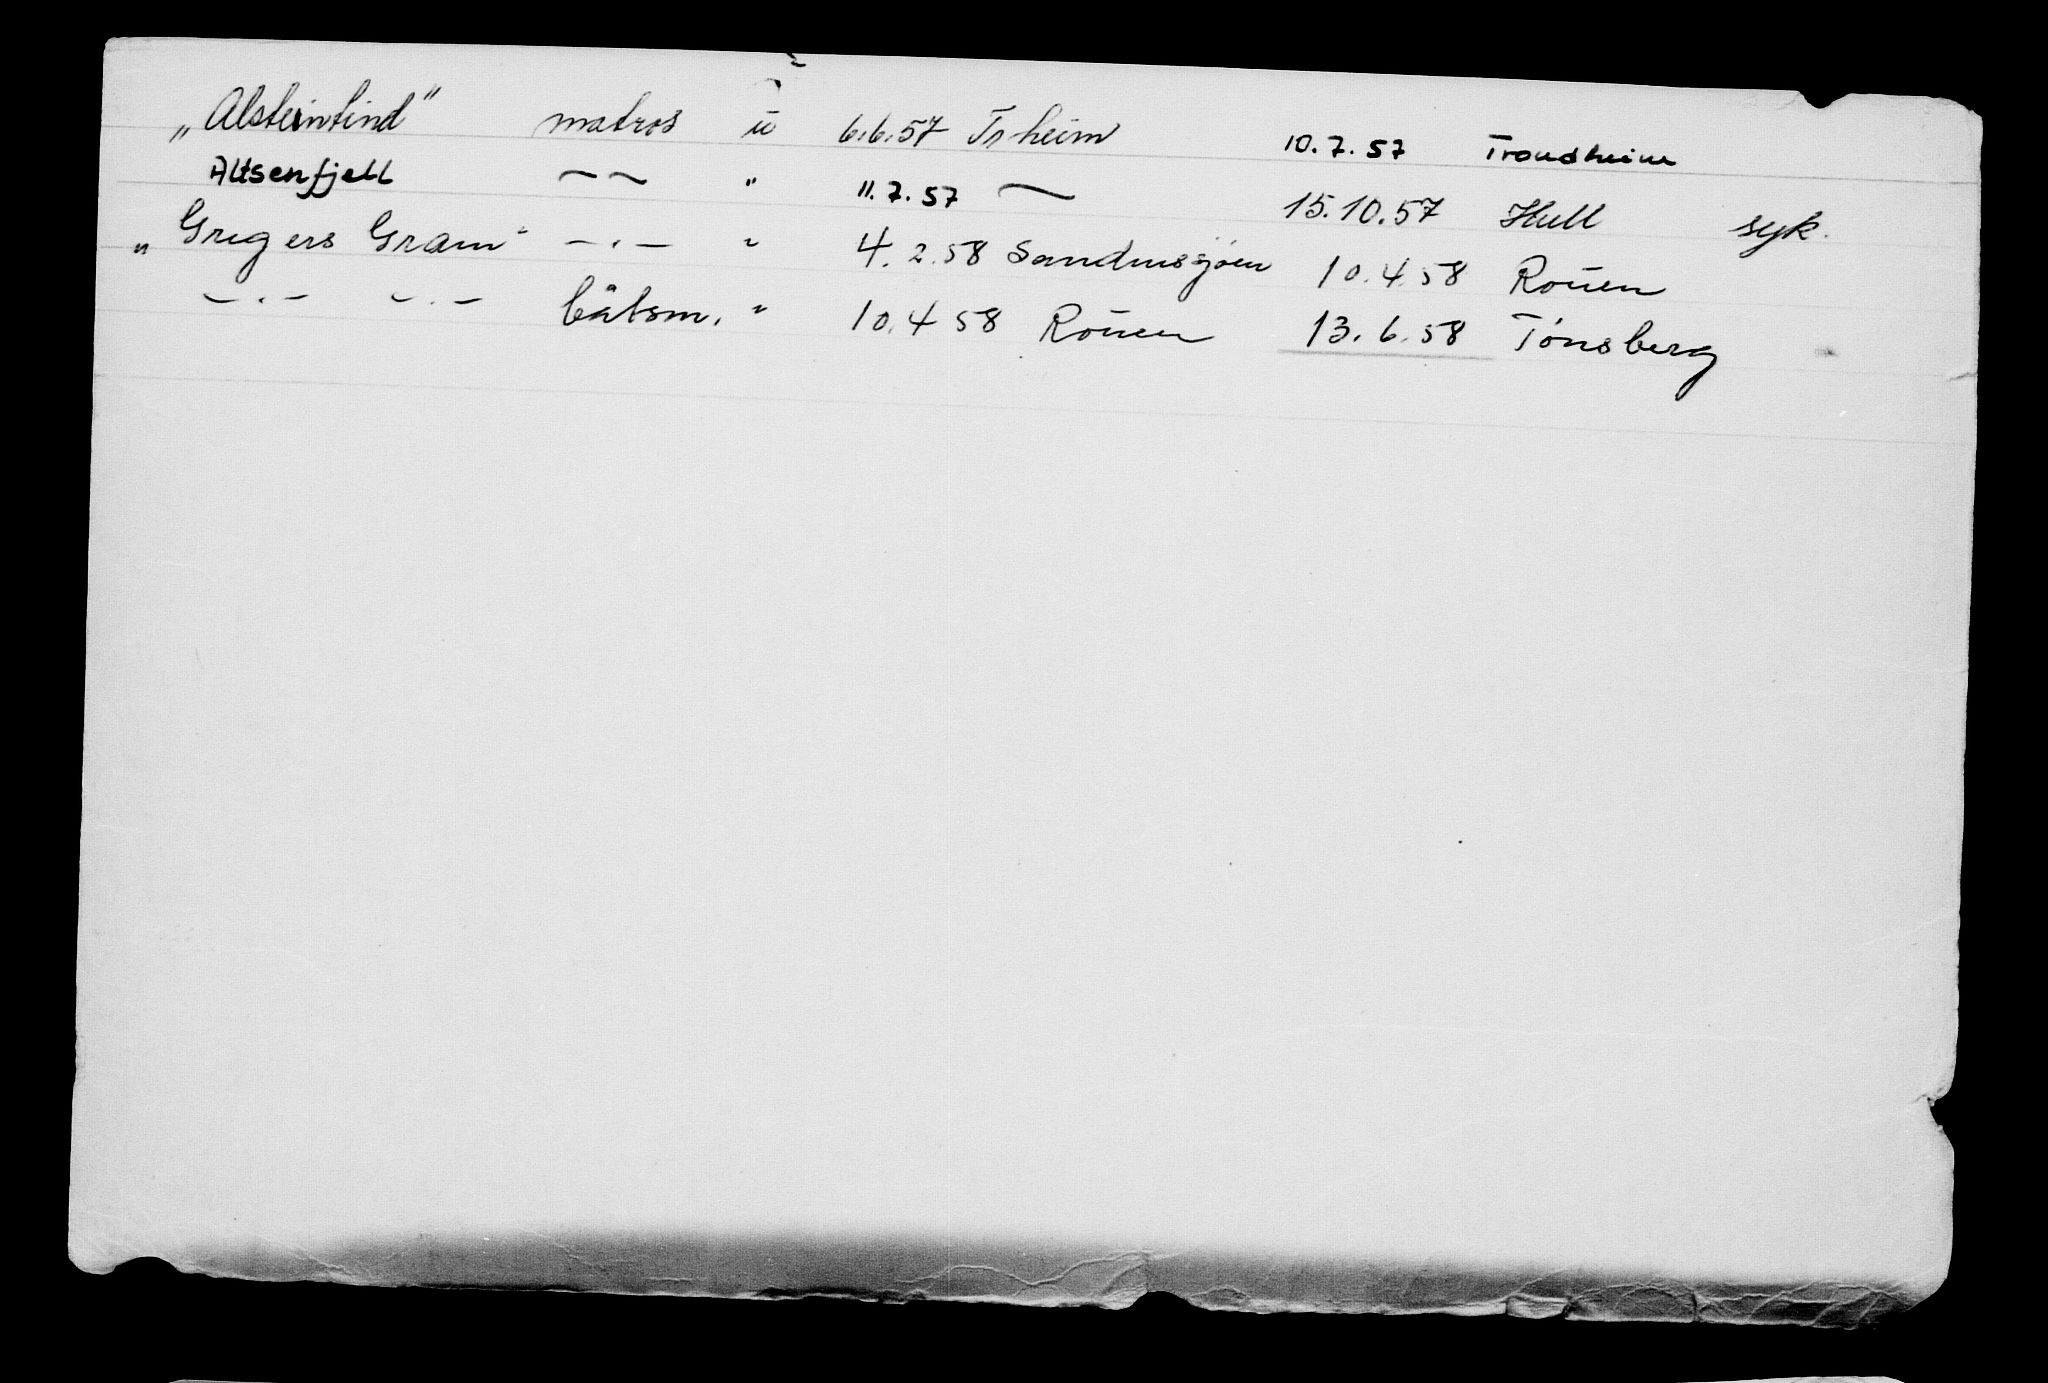 „Alsteintind" matros u 6.6.57 Tr heim 10.7.57 Trondheim
Altsenfjell —〃— " 11.7.57 — 15.10.57 Hull syk.
„Gregers Gram" —〃— " 4.2.58 Sandnessjøen 10.4.58 Rouen
—〃— —〃— båtsm. " 10.4 58 Rouen 13.6.58 Tønsberg